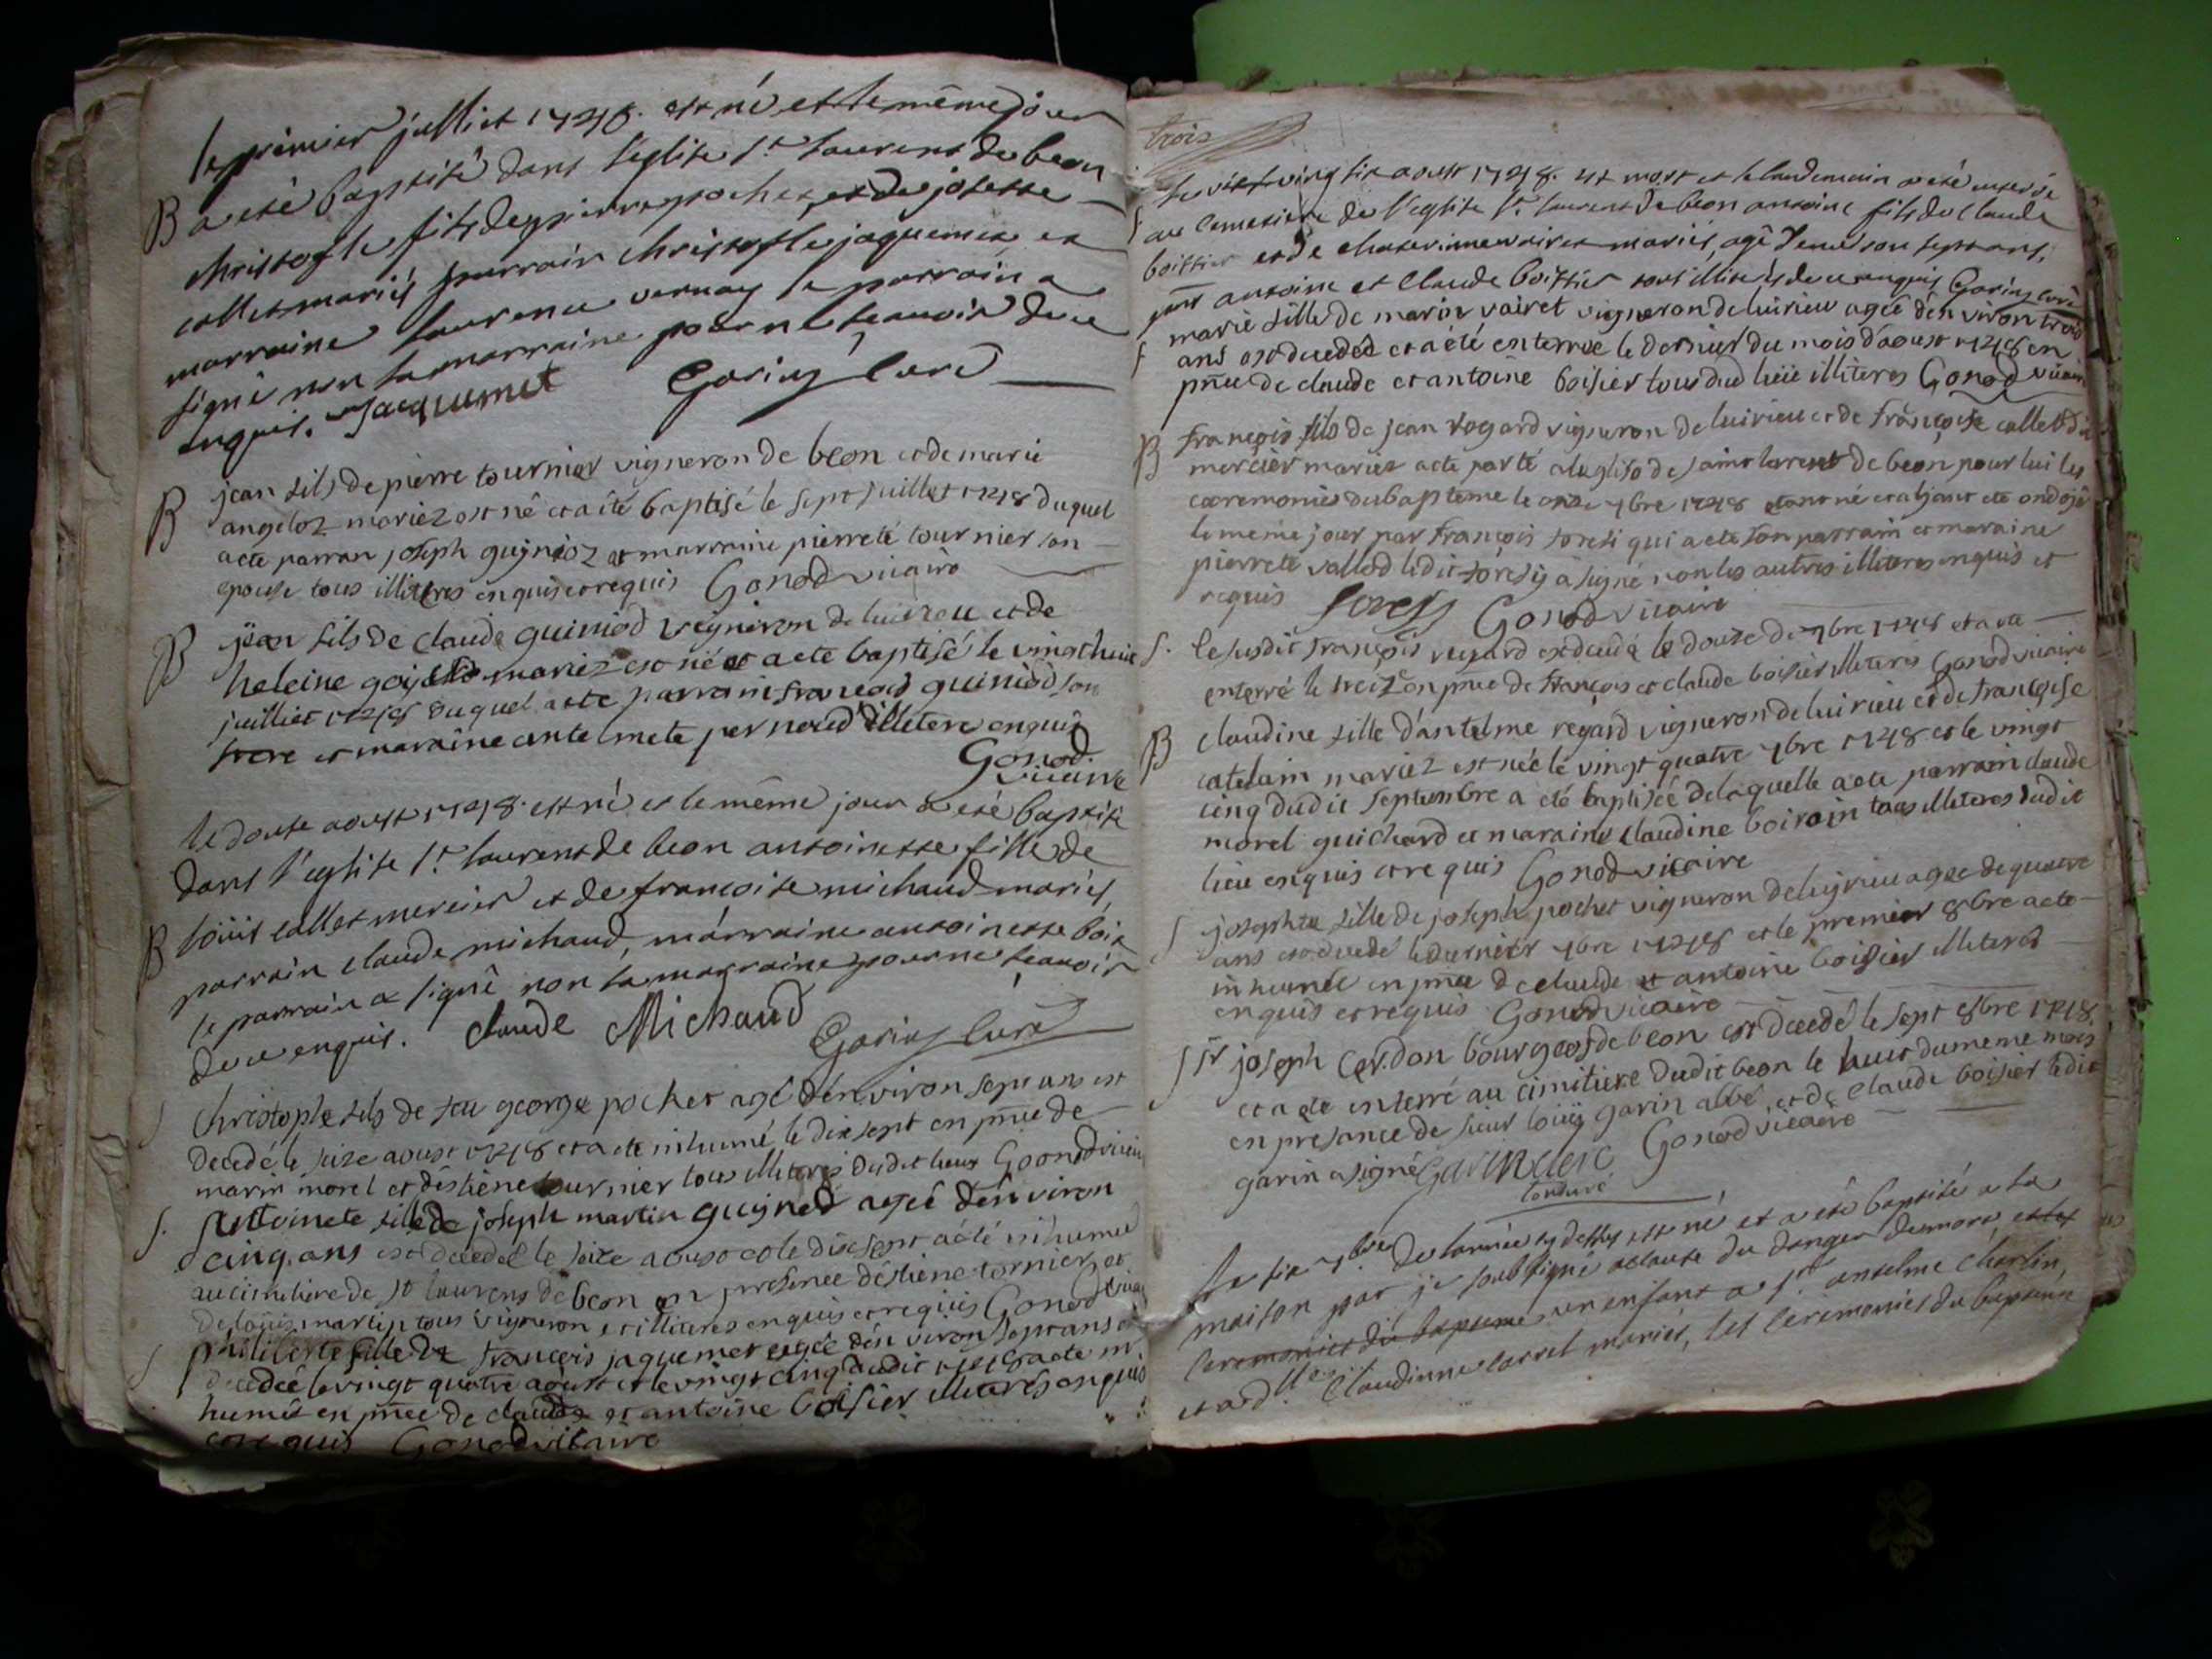 le premier julliet 1748. est né et le même jour
B a eté baptisé dans l'eglise St laurent de beon
christofle fils de pierre pochet, et de josette
collet mariés parrain christofle jaquemet et
marraine laurence vernay le parrain a
signé non la marraine pour ne scavoir de ce
enquis. Jacquemet Garin curé
B jean fils de pierre tournier vigneron de beon et de marie
angeloz mariez est né et a été baptisé le sept juillet 1748 duquel
a ete parran joseph guignioz et marraine pierrete tournier son
epouse tous illiteres enquis et requis Gonod vicaire
B jean fils de claude guiniod vigneron de luirieu et de
heleine mariez est né et a ete baptisé le vingt huit
juilliet 1748 duquel a ete parrain francois guiniod son
frere et maraine antelmete pernoud illetere enquis
Gonod
vicaire
le douse aoust 1748. est né et le même jour a eté baptisé
dans l'eglise St laurent de beon antoinette fille de
B loüis collet mercier et de francoise michaud mariés,
parrain claude michaud, marraine antoinette
le parrain a signé non la marraine pour ne scavoir
de ce enquis. claude Michaud Garin curé
S christople fils de feu george pochet agé d'environ sept ans est
decedé le seize aoust 1748 et a ete inhumé le dix sept en pnce de
marin morel et d'estiene tournier tous illiteres dudit lieux Gonod vicaire
S. Antoinete fille de joseph martin guigned agée d'environ
cinq ans est decedée le seize aoust et le dix sept a été inhumé
au cimitiere de st laurens de beon en presence d'estiene tornier et
de loüis martin tous vigneron et illiteres enquis et requis Gonod vicaire
S philiberte fille de françois jaquemet agée d'en viron sept ans
decedée le vingt quatre aoust et le vingt cinq dudit 1748 a ete in
humée en pnce de claude et antoine boisier illiteres enquis
et requis Gonod vicaire
trois
le vingt six aoust 1748. est mort et le landemain a eté enterré
S au cemetiere de l'eglise St laurent de beon antoine fils de claude
boissier et de chaterinne mariés, agé d'environ sept ans,
pnts antoine et claude boissier tous illiterés de ce enquis Garin curé
marie fille de marin vairet vigneron de luirieu agée d'environ trois
S ans est decedée et a été enterree le dernier du mois d'aoust 1748 en
pnce de claude et antoine boisier tous dud lieu illiteres Gonod vicaire
B françois fils de jean regard vigneron de luirieu et de françoise collet dit
mercier mariez a ete porté a l'eglise de saint laurent de beon pour lui les
ceremonies du bapteme le onze 7bre 1748 etant né et aÿant ete ondoyé
le meme jour par françois soresi qui a ete son parrain et maraine
pierrete vallod ledit soresÿ a signé non les autres illiteres enquis et
requis Soresy Gonod vicaire
S. le susdit françois regard est decedé le douse de 7bre 1748 et a ete
enterré le treize en pnce de françois et claude boisier illiteres Gonod vicaire
B claudine fille d'antelme regard vigneron de luirieu et de françoise
catelain mariez est née le vingt quatre 7bre 1748 et le vingt
cinq dudit septembre a eté baptisée de laquelle a ete parrain claude
morel guichard et maraine claudine boirain tous illiteres dudit
lieu enquis et requis Gonod vicaire
S josephte fille de joseph pochet vigneron de luyrieu agée de quatre
ans est decedé le dernier 7bre 1748 et le premier 8bre a ete
inhumée en pnce de claude et antoine boisier illiteres
enquis et requis Gonod vicaire
S Sr joseph Cerdon bourgeois de beon est decedé le sept 8bre 1748
et a ete enterré au cimitiere dudit beon le huit du meme mois
en présance de sieur loüis garin abbé et de claude boisier ledit
garin a signé Garin clerc Gonod vicaire
tonsuré
le six 7bre de l'année cy dessus est né et a eté baptisé a la
maison par je soubsigné a cause du danger de mort et les
ceremonies du bapteme un enfant a Sr anselme charlin,
et a dlle Claudinne carrel mariés, les ceremonies du bapteme